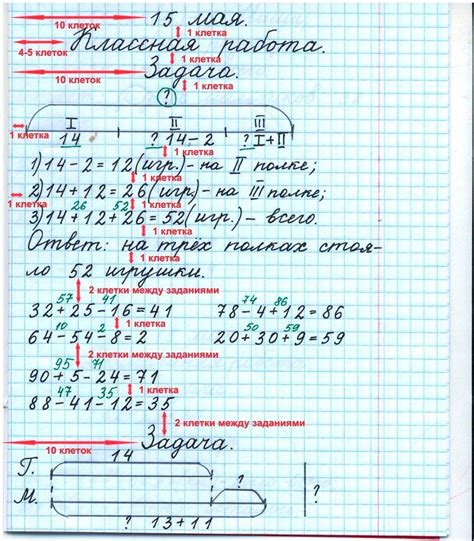 10 клеток 15 мая.
1 клетка
4-5 клеток Классная работа.
1 клетка
10 клеток Задача.
? 1 клетка
1 клетка I II III
14 ? 14-2 ? I+II
1) 14-2=12 (игр.) - на II полке;
1 клетка
1 клетка 2) 14+12=26 (игр.) - на III полке;
26 52 1 клетка
3) 14+12+26=52 (игр.) - всего.
1 клетка
Ответ: на трёх полках стоя-
1 клетка
ло 52 игрушки.
2 клетки между заданиями
57 41 74 86
32+25-16=41 78-4+12=86
10 2 1 клетка 50 59
64-54-8=2 20+30+9=59
2 клетки между заданиями
95 71
90+5-24=71
47 35 1 клетка
88-41-12=35
2 клетки между заданиями
10 клеток Задача.
14
Г.
? ?
М.
? 13+11